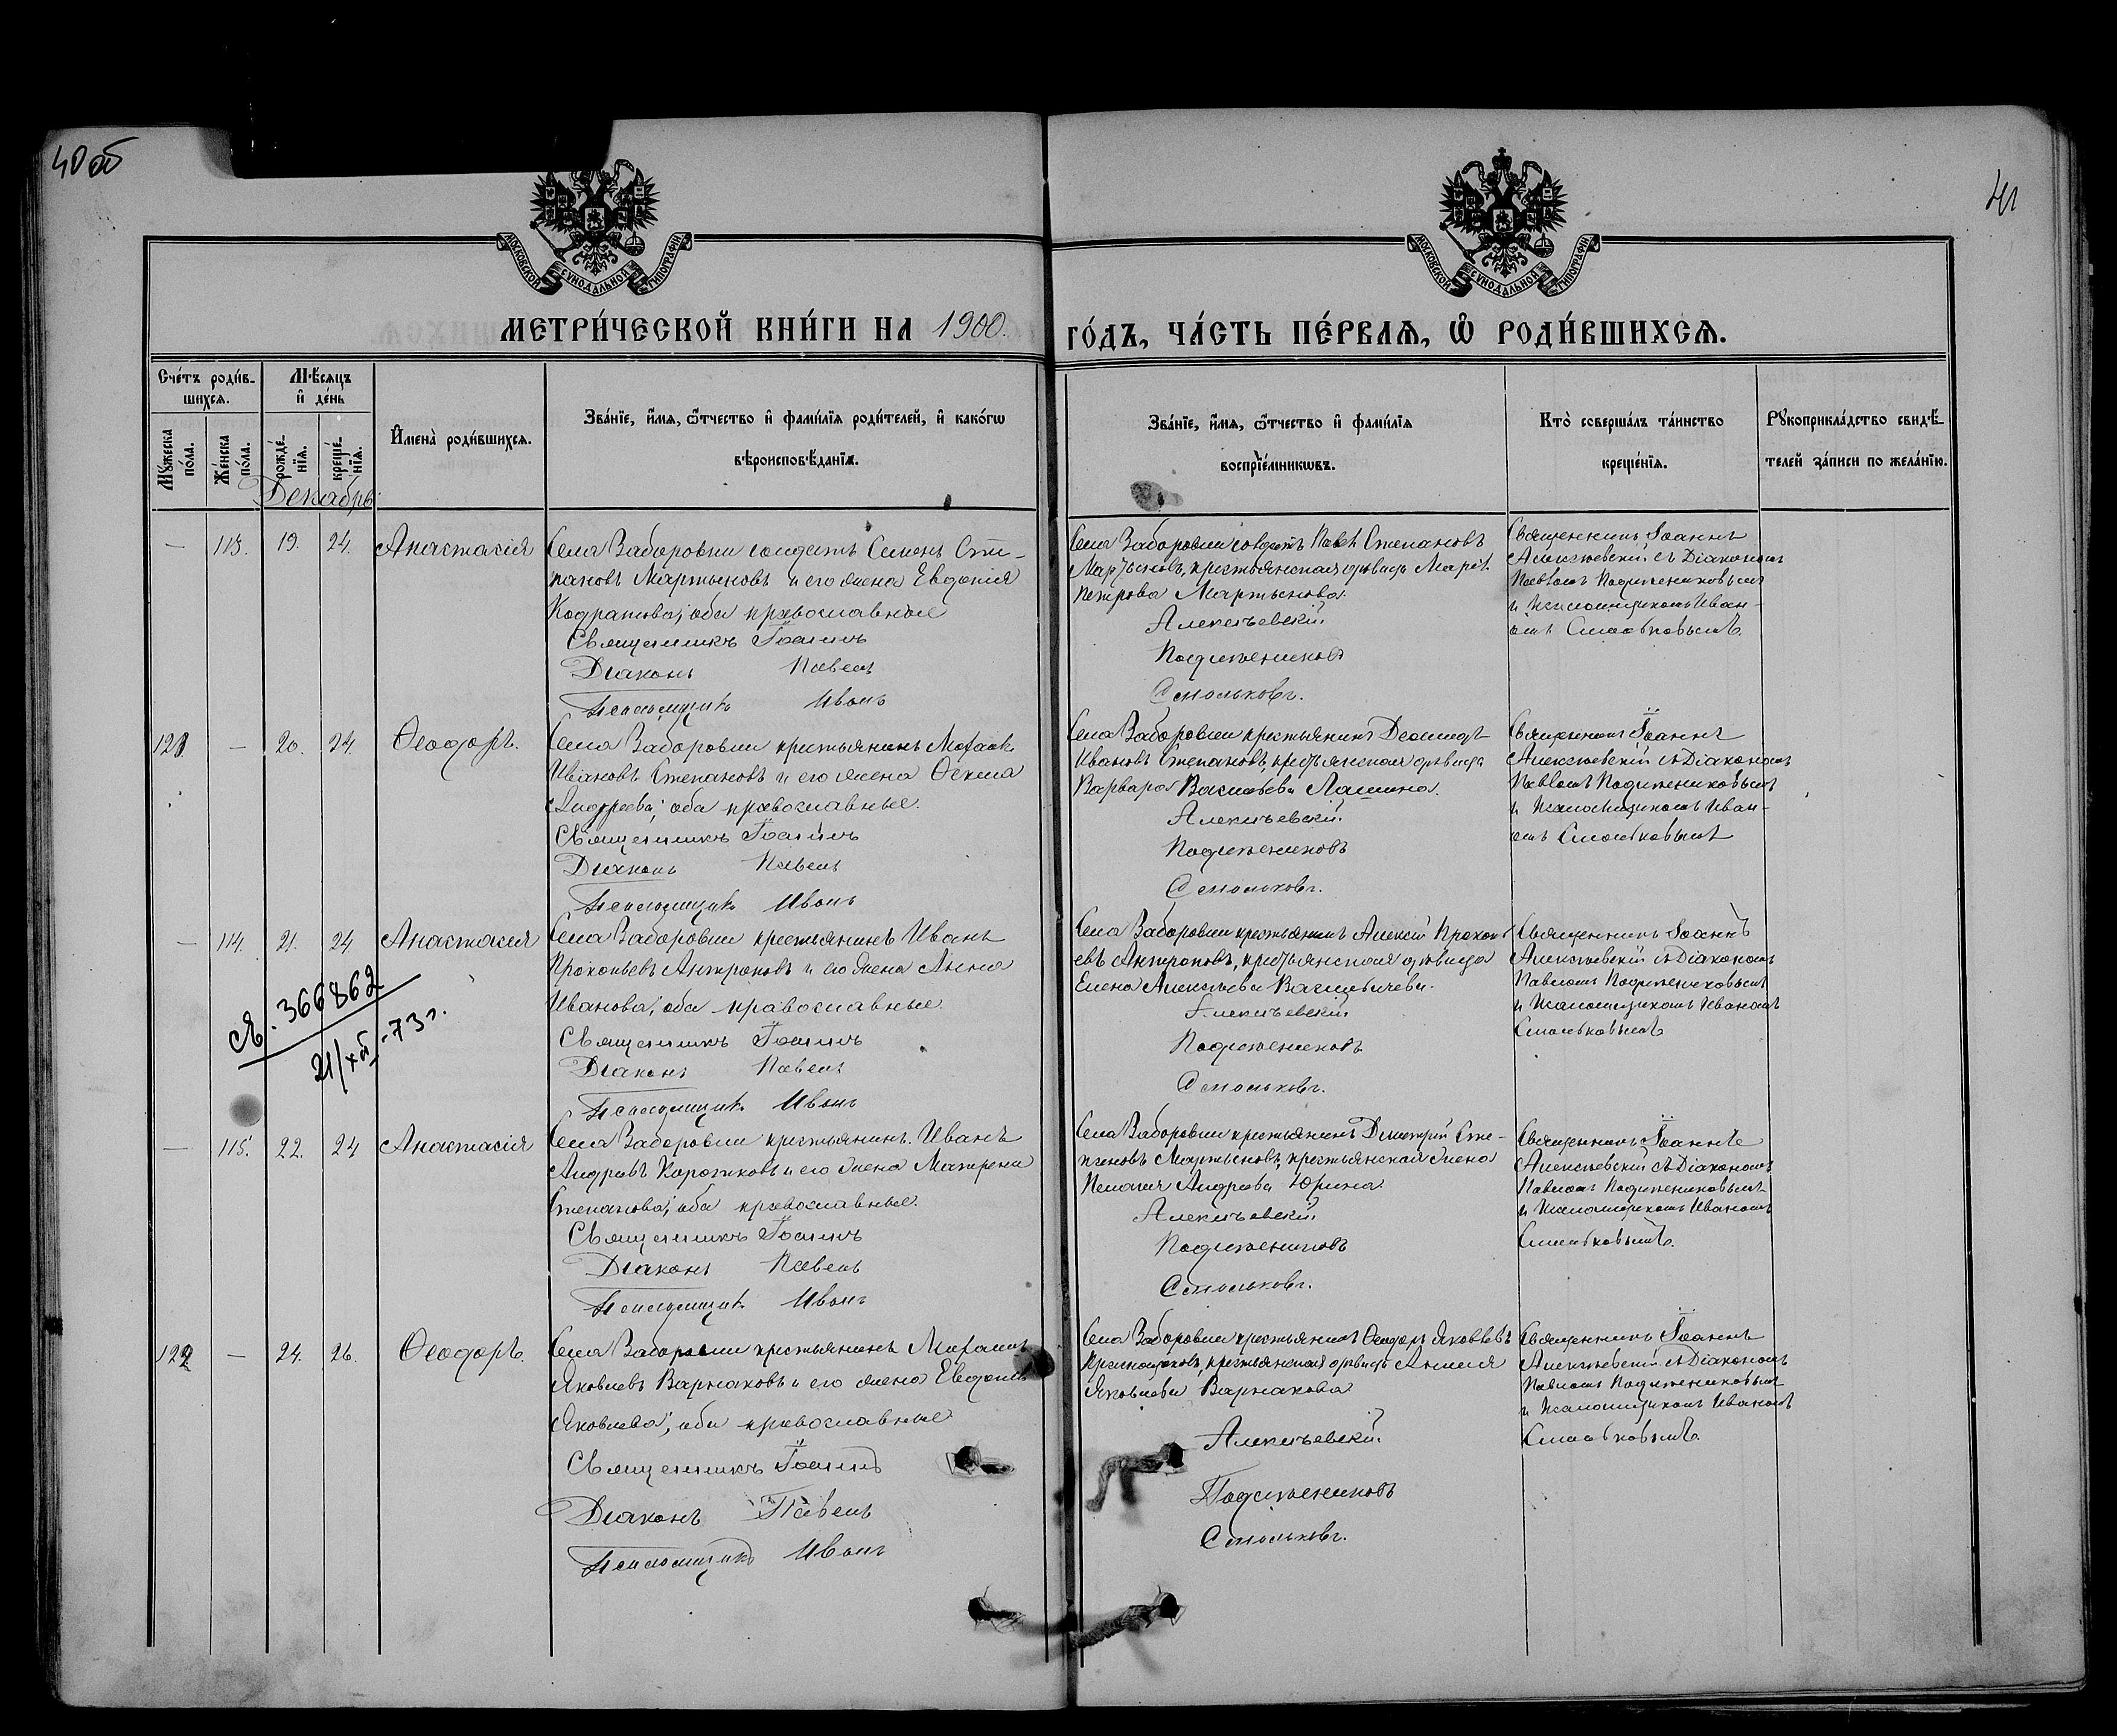 40 об
41
МОСКОВСКОЙ СѴНОДАЛЬНОЙ ТИПОГРАФІИ
МОСКОВСКОЙ СѴНОДАЛЬНОЙ ТИПОГРАФІИ
МЕТРИ́ЧЕСКОЙ КНИ́ГИ НА 1900. ГО́ДЪ, ЧА́СТЬ ПЕ́РВАѦ, Ѡ РОДИ́ВШИХСѦ.
Сче́тъ роди́в-
шихсѧ.
Мꙋжеска по́ла.
Же́нска по́ла.
Мѣ́сѧцъ и де́нь
рожде́-нїѧ.
креще́-нїѧ.
Декабрь
Имена̀ роди́вшихсѧ.
Зва́нїе, и́мѧ, ѻ́тчество и фами́лїѧ роди́телей, и како́гѡ
вѣроисповѣ́данїѧ.
Зва́нїе, и́мѧ, ѻ́тчество и фами́лїѧ
воспрїе́мникѡвъ.
Кто̀ соверша́лъ та́инство
креще́нїѧ.
Рꙋкоприкла́дство свидѣ́-
телей за́писи по жела́нїю.
— 113. 19. 24. Анастасія
Села Заборовки солдатъ Семенъ Сте-
пановъ Мартыновъ и его жена Евдокія
Кодратова; оба православные
Священникъ Іоаннъ
Діаконъ Павелъ
Псаломщикъ Иванъ
Села Заборовки солдатъ Павелъ Степановъ
Мартыновъ, крестьянская дѣвица
Петрова Мартынова.
Алексѣевскій
Подлѣсниковъ
Смольковъ.
Священникъ Іоаннъ
Алексѣевскій съ Діакономъ
Павломъ
и Псаломщикомъ Иван-
омъ Смольковымъ.
121 — 20. 24 Ѳеодоръ.
Села Заборовки крестьянинъ
Ивановъ Степановъ и его жена Ѳекла
Андреева; оба православные.
Священникъ Іоаннъ
Діаконъ Павелъ
Псаломщикъ Иванъ
Села Заборовки крестьянинъ
Ивановъ Степановъ, крестьянская дѣвица
Варвара Васильева Лашина.
Алексѣевскій
Смольковъ.
Священникъ Іоаннъ
Алексѣевскій съ Діакономъ
Павломъ
и Псаломщикомъ Иван-
омъ Смольковымъ
— 114. 21. 24 Анастасія
Села Заборовки крестьянинъ Иванъ
Прокопьевъ Антроповъ и его жена Анна
Иванова; оба православные
Священникъ Іоаннъ
Діаконъ Павелъ
Псаломщикъ Иванъ
Села Заборовки крестьянинъ Алексій Прокоп-
евъ Антроповъ, крестьянская дѣвица
Елена Алексѣева
Алексѣевскій
Смольковъ.
Священникъ Іоаннъ
Алексѣевскій съ Діакономъ
Павломъ
и Псаломщикомъ Иваномъ
Смольковымъ
366862
21/XII-73 г.
— 115. 22. 24 Анастасія
Села Заборовки крестьянинъ Иванъ
и его жена Матрена
Степанова; оба православные.
Священникъ Іоаннъ
Діаконъ Павелъ
Псаломщикъ Иванъ
Села Заборовки крестьянинъ Димитрій Сте-
пановъ Мартыновъ, крестьянская жена
Пелагія Андреева Юрина.
Алексѣевскій
Смольковъ.
Священникъ Іоаннъ
Алексѣевскій съ Діакономъ
Павломъ
и Псаломщикомъ Иваномъ
Смольковымъ.
122 — 24. 26. Ѳеодоръ.
Села Заборовки крестьянинъ Михаилъ
Яковлевъ Варнаковъ и его жена Евдокія
Яковлева; оба православные
Священникъ Іоаннъ
Діаконъ Павелъ
Псаломщикъ Иванъ
Села Заборовки крестьянинъ Ѳеодоръ Яковлевъ
крестьянская дѣвица
Яковлева Варнакова
Алексѣевскій
Смольковъ.
Священникъ Іоаннъ
Алексѣевскій съ Діакономъ
Павломъ
и Псаломщикомъ Иваномъ
Смольковымъ.